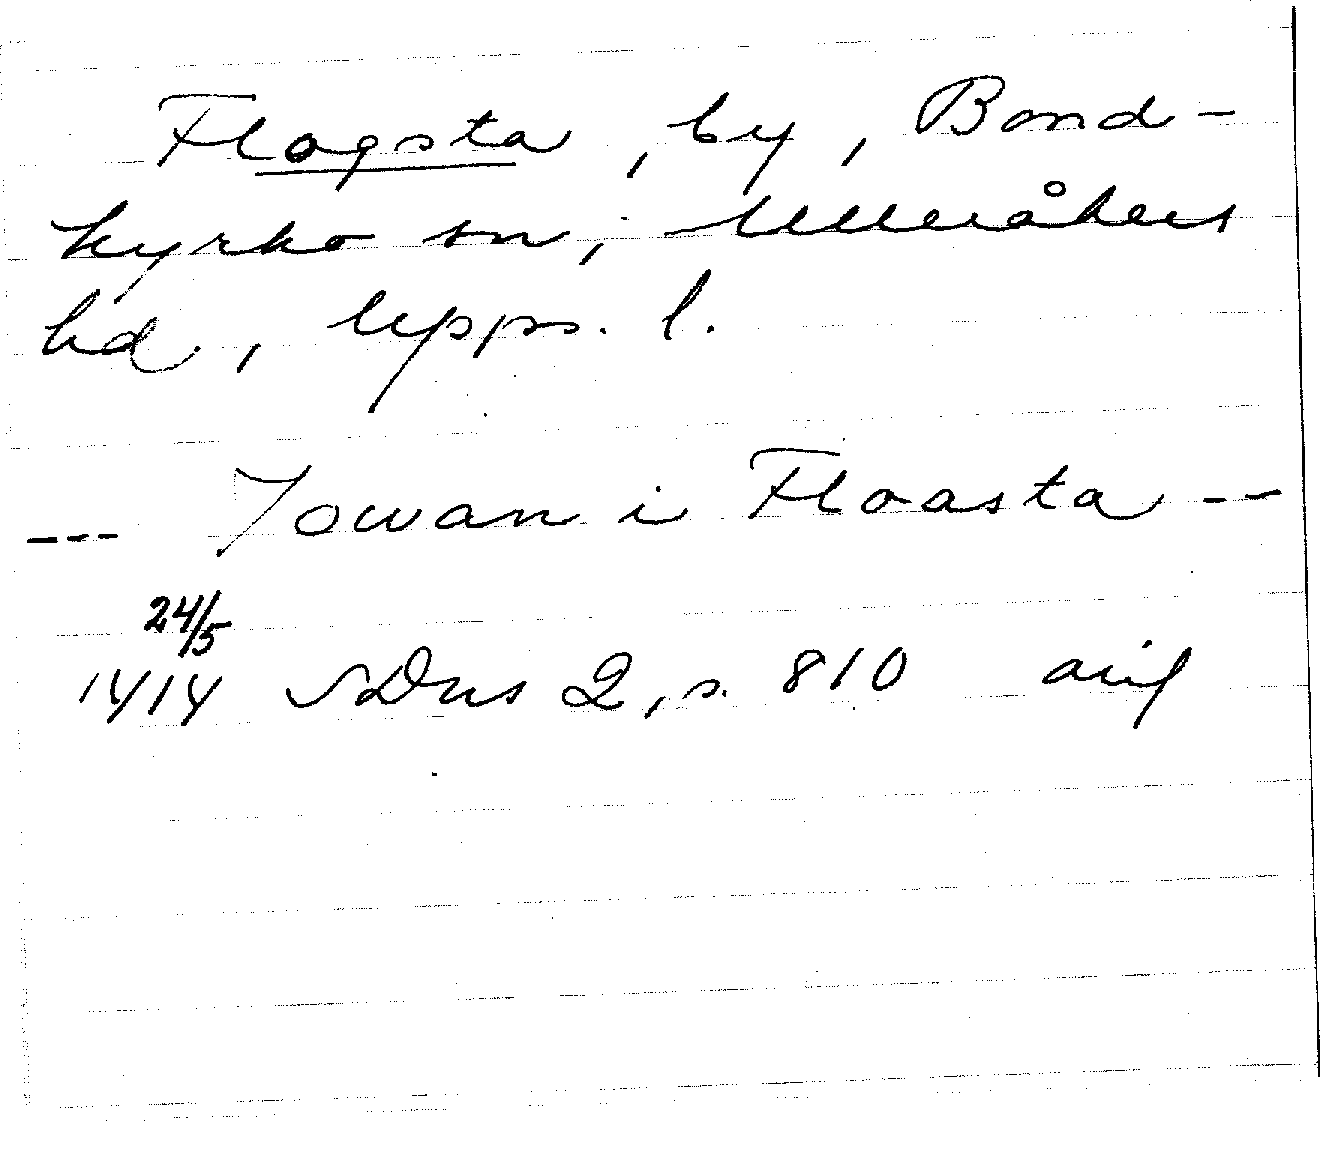 Flogsta, by, Bond-
kyrko sn, Ulleråkers
hd, Upps. l.
--- Jowan i Floasta --
24/5
1414 SDns 2, s. 810 avig